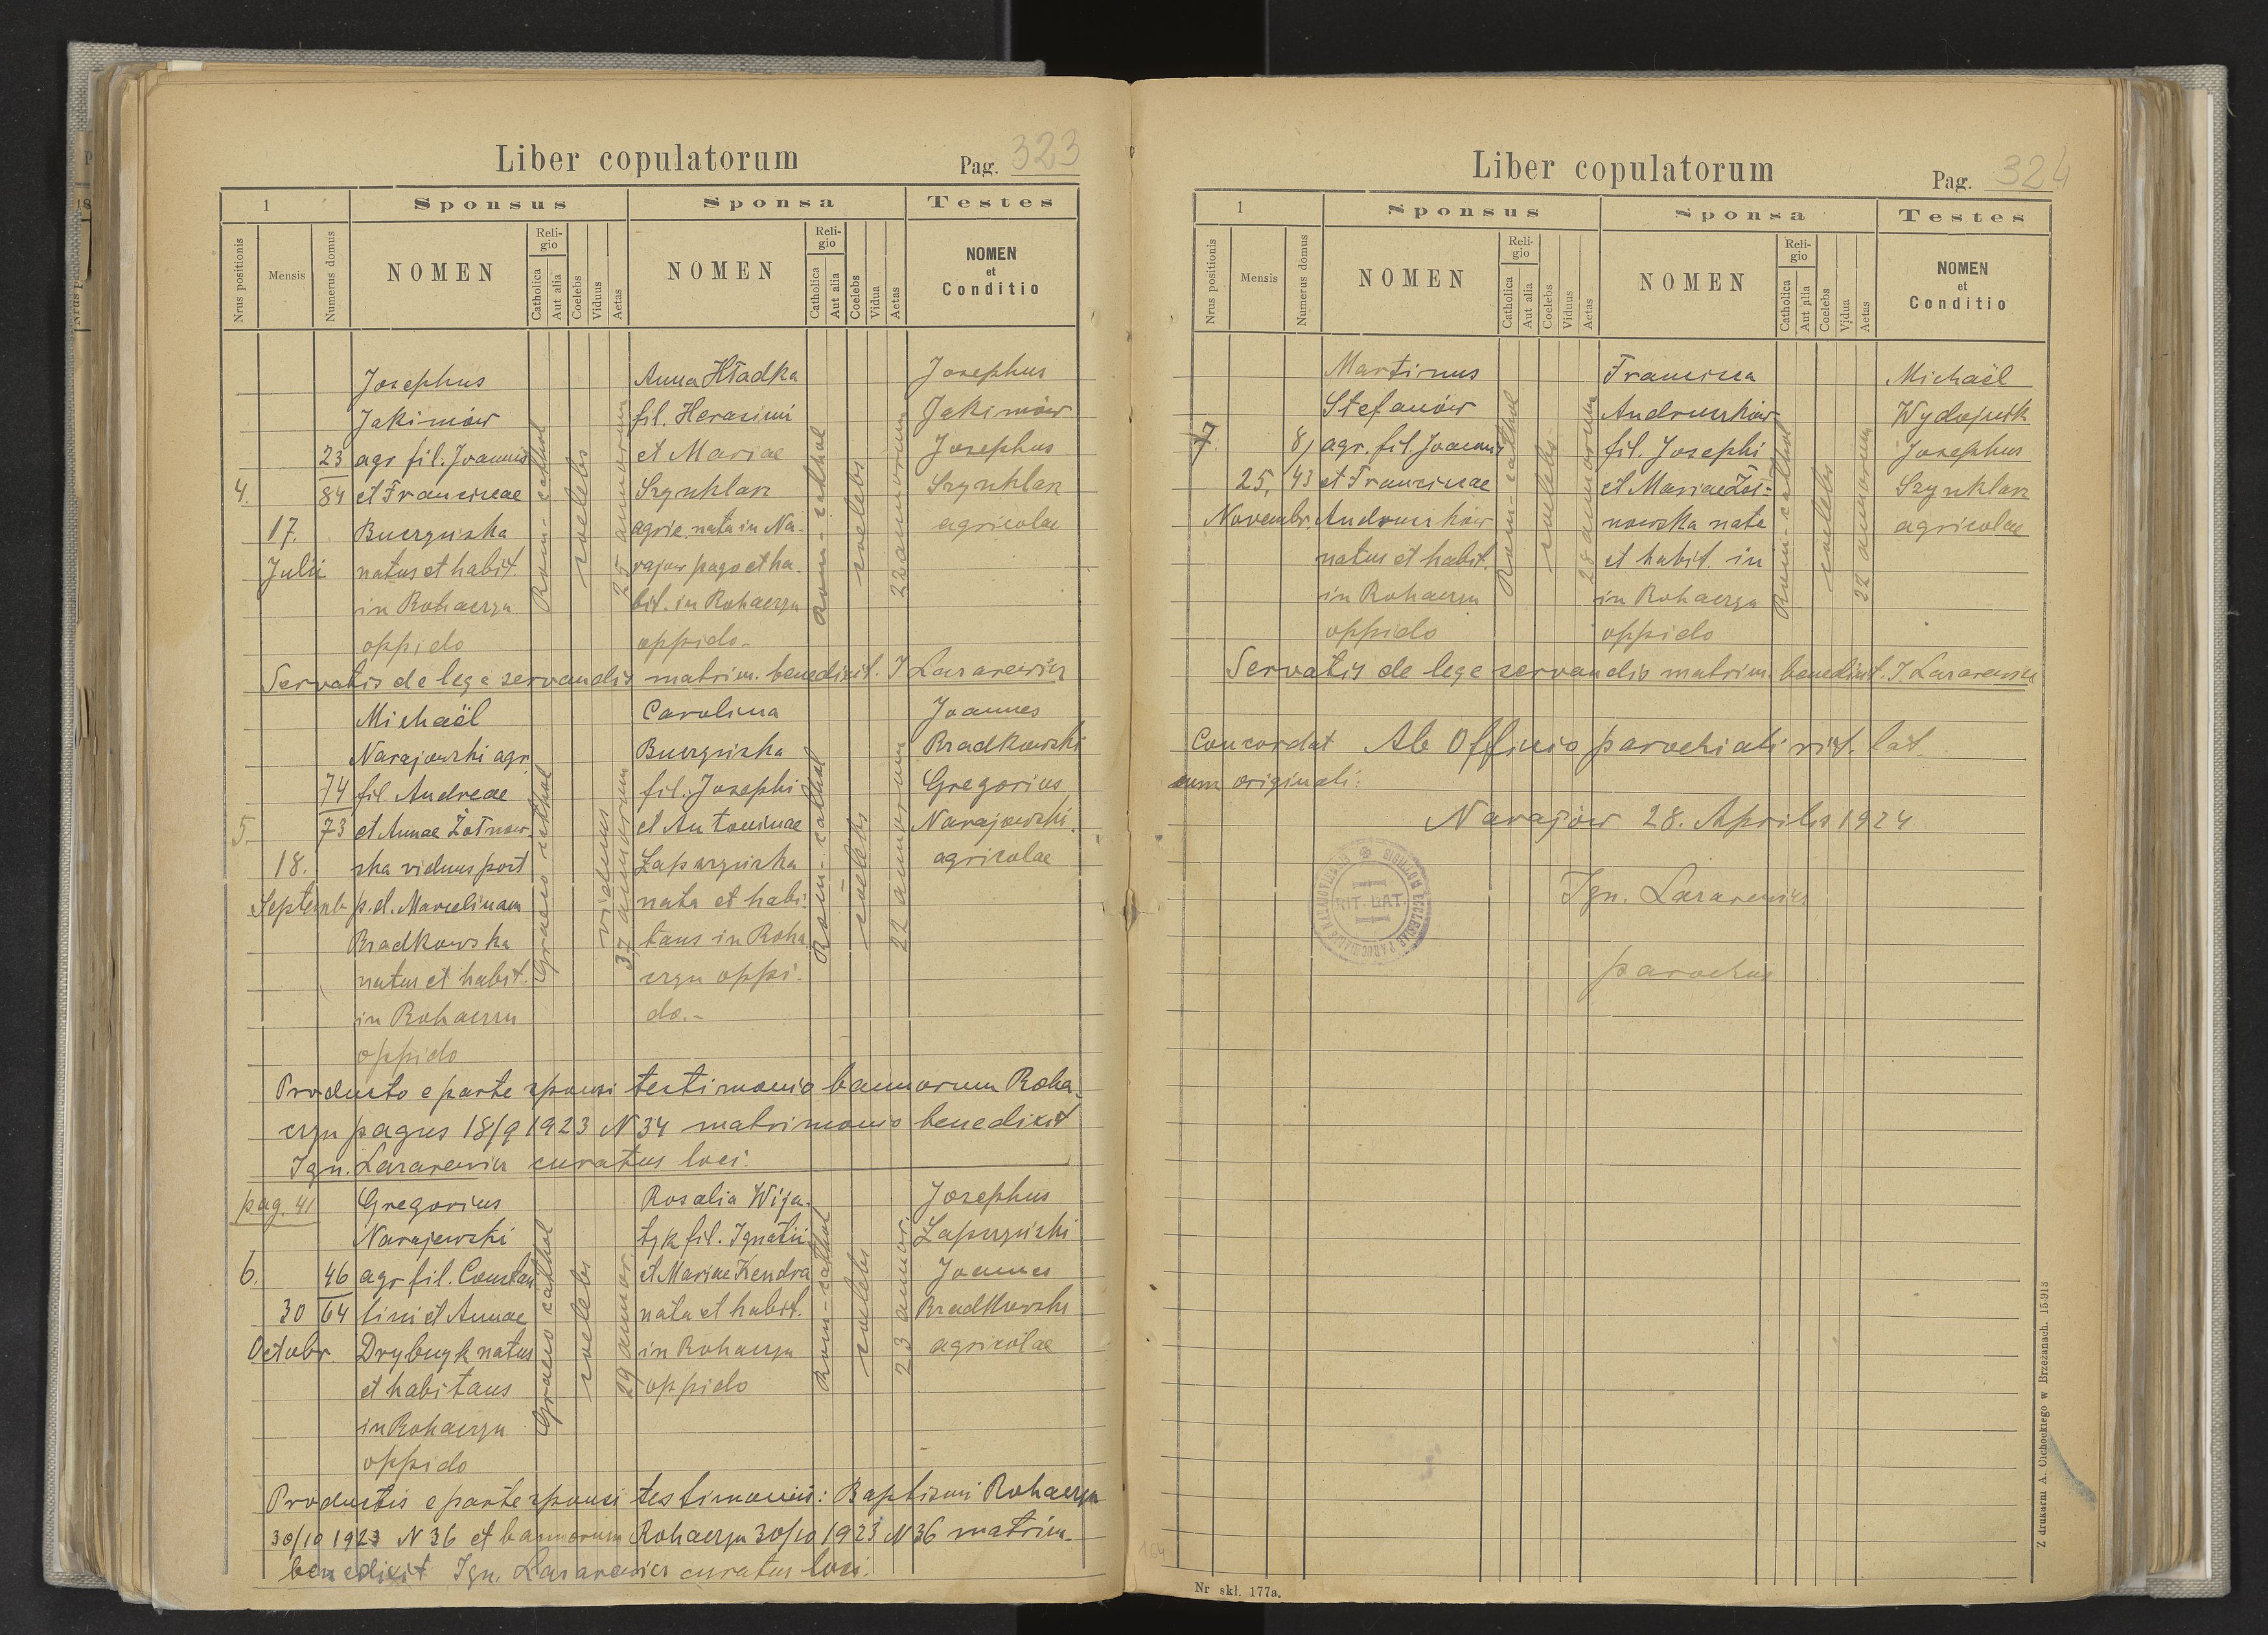 Liber copulatorum
Pag. 323
1
Sponsus
Sponsa
Testes
Nrus positionis
Mensis
Numerus domus
NOMEN
Religio
Catholica
Aut alia
Coelebs
Viduus
Aetas
NOMEN
Religio
Catholica
Aut alia
Coelebs
Vidua
Aetas
NOMEN
et
Conditio
4.
17.
Julii
23
84
Josephus
Jakimów
agr fil. Joannis
et Franciscae
Buczyńska
natus et habit
in Rohaczyn
oppido
Rom-cathol
coelebs
25 annorum
Anna Hładka
fil. Herasimi
et Mariae
Szynklarz
agric. nata in Na-
rajow pago et ha-
bit. in Rohaczyn
oppido.
Rom-cathol
coelebs
22 annorum
Josephus
Jakimów
Josephus
Szynklarz
agricolae
Servatis de lege servandis matrim. benedixit. I Lazarewicz
5.
18.
Septemb
74
73
Michaël
Narajowski agr
fil Andreae
et Annae Żołnow-
ska viduus post
p.d. Marcelinam
Bradkowska
natus et habit.
in Rohaczyn
oppido
Graeco cathol
viduus
37 annorum
Carolina
Buczyńska
fil. Josephi
et Antoninae
Zapuzyńska
nata et habi
tans in Roha
czyn oppi-
do.-
Rom-cathol
coelebs
22 annorum
Joannes
Bradkowski
Gregorius
Narajowski
agricolae
Producto e parte sponsi testimonio bannorum Roha-
czyn pagus 18/9 1923 N 34 matrimonio benedixit
Ign. Lazarewicz curatus loci.
pag. 41
6.
30
Octobr.
46
64
Gregorius
Narajewski
agr fil. Constan
tini et Annae
Drybczyk natus
et habitans
in Rohaczyn
oppido
Graeco cathol
coelebs
29 annor.
Rosalia Wija-
tyk fil. Ignatii
et Mariae Kendra
nata et habit.
in Rohaczyn
oppido
Rom-cathol
coelebs
23 annor.
Josephus
Zapuzyński
Joannes
Bradkowski
agricolae
Productis e parte sponsi testimoniis: Baptismi Rohaczyn
30/10 1923 N 36 et bannorum Rohaczyn 30/10 1923 N 36 matrim.
benedixit Ign. Lazarewicz curatus loci.
Liber copulatorum
Pag. 324
1
Sponsus
Sponsa
Testes
Nrus positionis
Mensis
Numerus domus
NOMEN
Religio
Catholica
Aut alia
Coelebs
Viduus
Aetas
NOMEN
Religio
Catholica
Aut alia
Coelebs
Vidua
Aetas
NOMEN
et
Conditio
7.
25.
Novembr.
8,
43
Martinus
Stefanów
agr. fil. Joannis
et Franciscae
Andruszków
natus et habit.
in Rohaczyn
oppido
Rom-cathol
coelebs
28 annorum
Francisca
Andruszków
fil. Josephi
et Mariae Żoł-
nowska nata
et habit. in
in Rohaczyn
oppido
Rom-cathol
coelebs
22 annorum
Michaël
Josephus
Szynklarz
agricolae
Servatis de lege servandis matrim. benedixit. I. Lazarewicz
Concordat Ab Officio parochiali rit. lat.
cum originali:
Narajów 28. Aprilis 1924
SIGILLUM ECCLESIAE PAROCHIALIS
RIT. LAT.
Ign. Lazarewicz
parochus
164
Nr skł. 177a.
Z drukarni A. Cichockiego w Brzeżanach. 15-913